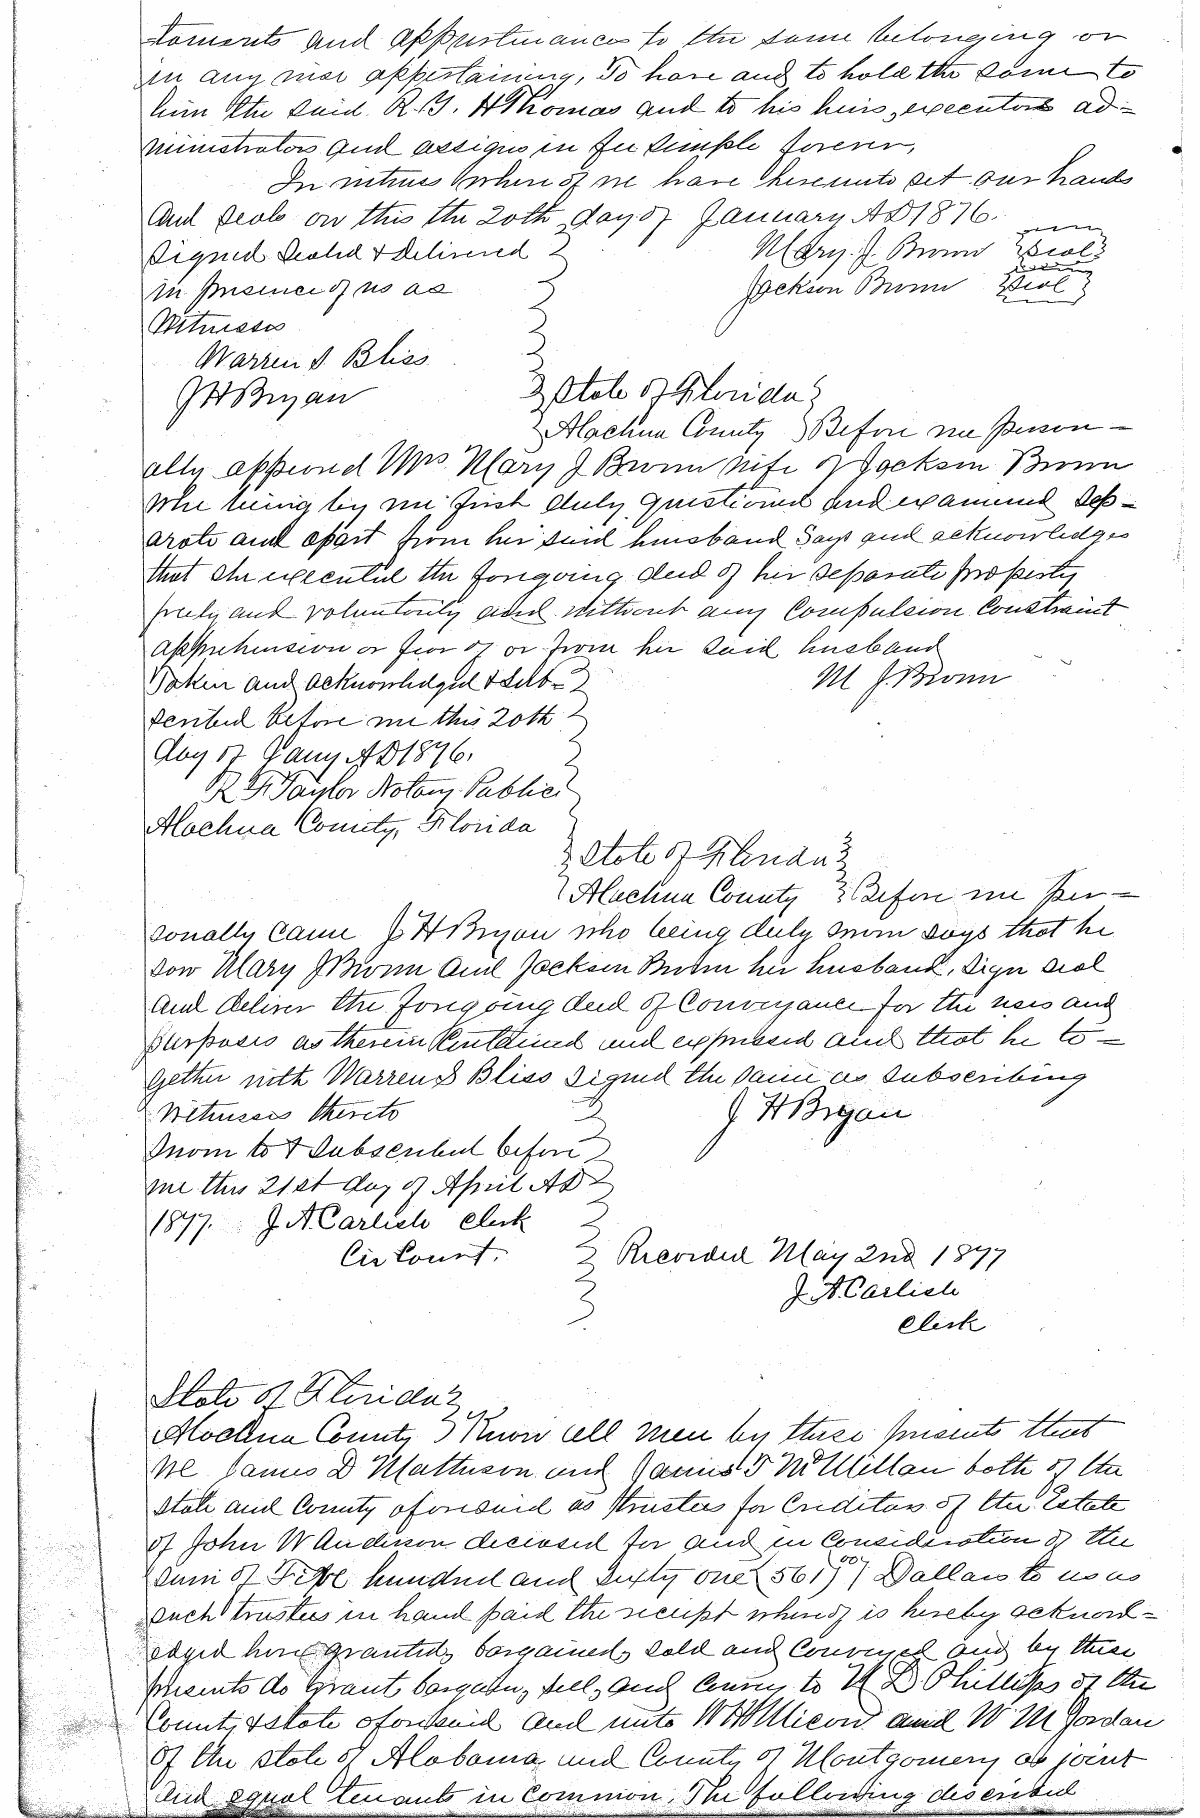 taments and appurtenances to the same belonging or
in any wise appertaining, To have and to hold the same to
him the said R. G. H Thomas and to his heirs, executors ad-
ministrators and assigns in fee simple forever,
In witness whereof we have hereunto set our hands
and seals on this the 20th day of January AD 1876.
Signed Sealed & delivered
Mary. J. Brown Seal
in presence of us as
Jackson Brown Seal
Witnesses
Warren S Bliss
J H Bryan
State of Florida
Alachua County Before me person-
ally appeared Mrs Mary J Brown wife of Jackson Brown
who being by me first duly questioned and examined Sep-
arate and apart from her said husband Says and acknowledges
that she executed the foregoing deed of her separate property
freely and voluntarily and without any Compulsion Constraint
apprehension or fear of or from her said husband
Taken and acknowledged & sub-
M J. Brown
scribed before me this 20th
day of Jany AD 1876.
R F Taylor Notary Public
Alachua County, Florida
State of Florida
Alachua County Before me Per-
sonally came J H Bryan who being duly sworn says that he
saw Mary J Brown and Jackson Brown her husband, Sign seal
and deliver the foregoing deed of Conveyance for the uses and
purposes as therein Contained and expressed and that he to-
gether with Warren S Bliss signed the same as subscribing
Witnesses thereto
J H Bryan
Sworn to & Subscribed before
me this 21st day of April AD
1877. J. A. Carlisle Clerk
Cir Court.
Recorded May 2nd 1877
J. A. Carlisle
Clerk
State of Florida
Alachua County Know all men by these presents that
we James D Matheson and James T McMillan both of the
state and County aforesaid as trustees for Creditors of the Estate
of John W Anderson deceased for and in Consideration of the
sum of Five hundred and sixty one (561 00/) Dollars to us as
such trustees in hand paid the receipt whereof is hereby acknowl-
edged have granted, bargained, sold and Conveyed and by these
presents do Grant, bargain, sell, and Convey to D Phillips of the
County & state aforesaid and unto Micou and W M Jordan
of the state of Alabama and County of Montgomery as joint
and equal tenants in Common, The following described